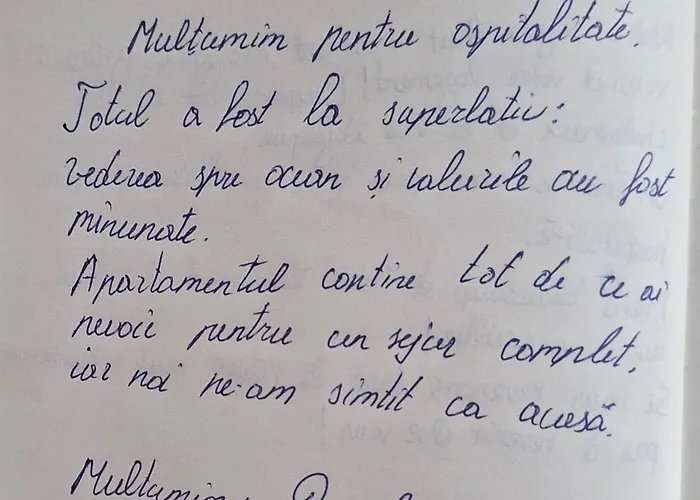 Mulțumim pentru ospitalitate.
Totul a fost la superlativ:
vederea spre ocean și valurile au fost
minunate.
Apartamentul contine tot de ce ai
nevoie pentru un sejur complet,
iar noi ne-am simtit ca acasă.
Multumim